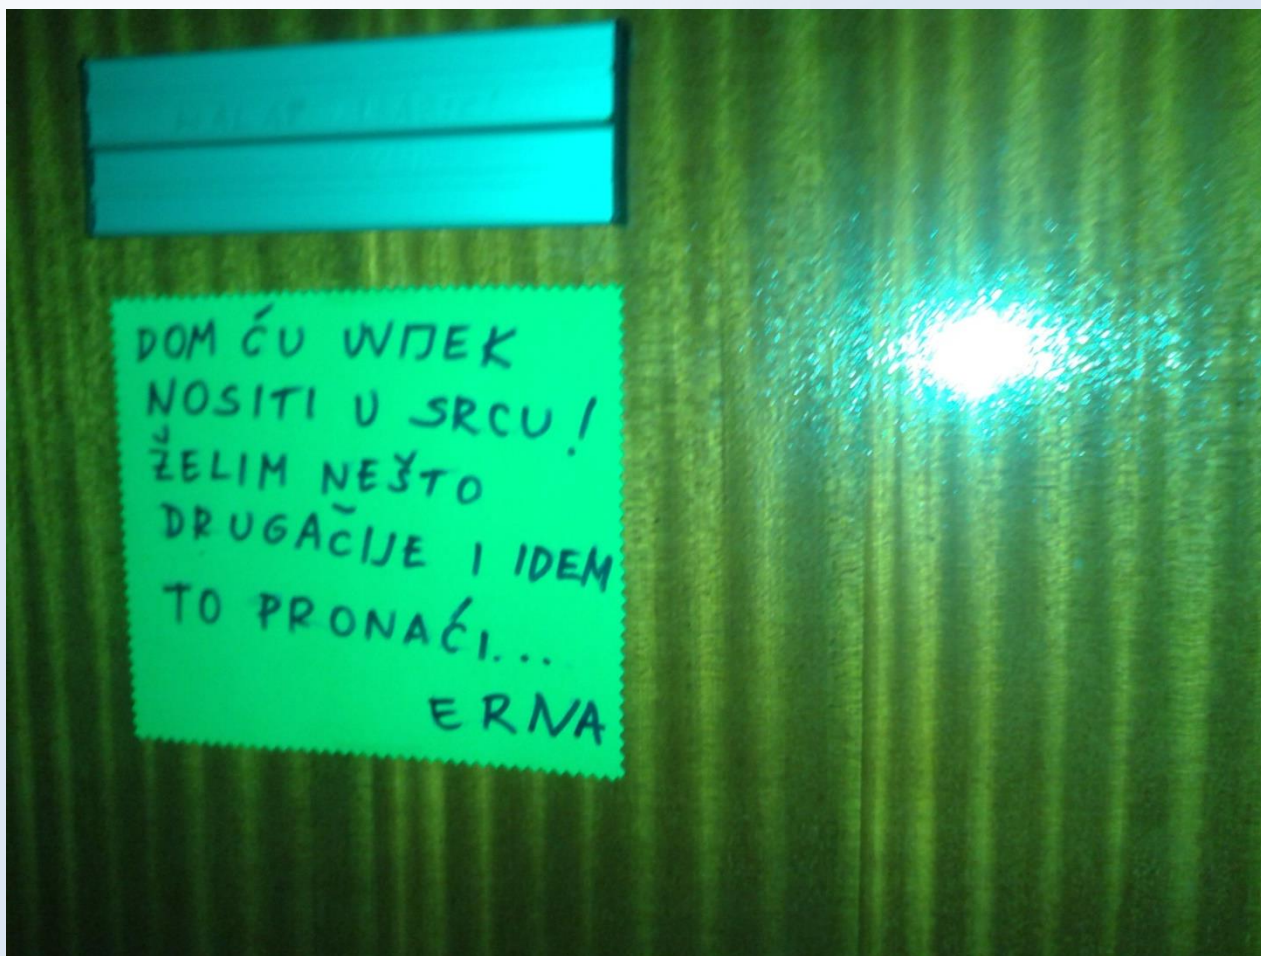 DOM ĆU UVIJEK
NOSITI U SRCU!
ŽELIM NEŠTO
DRUGAČIJE I IDEM
TO PRONAĆI...
ERNA